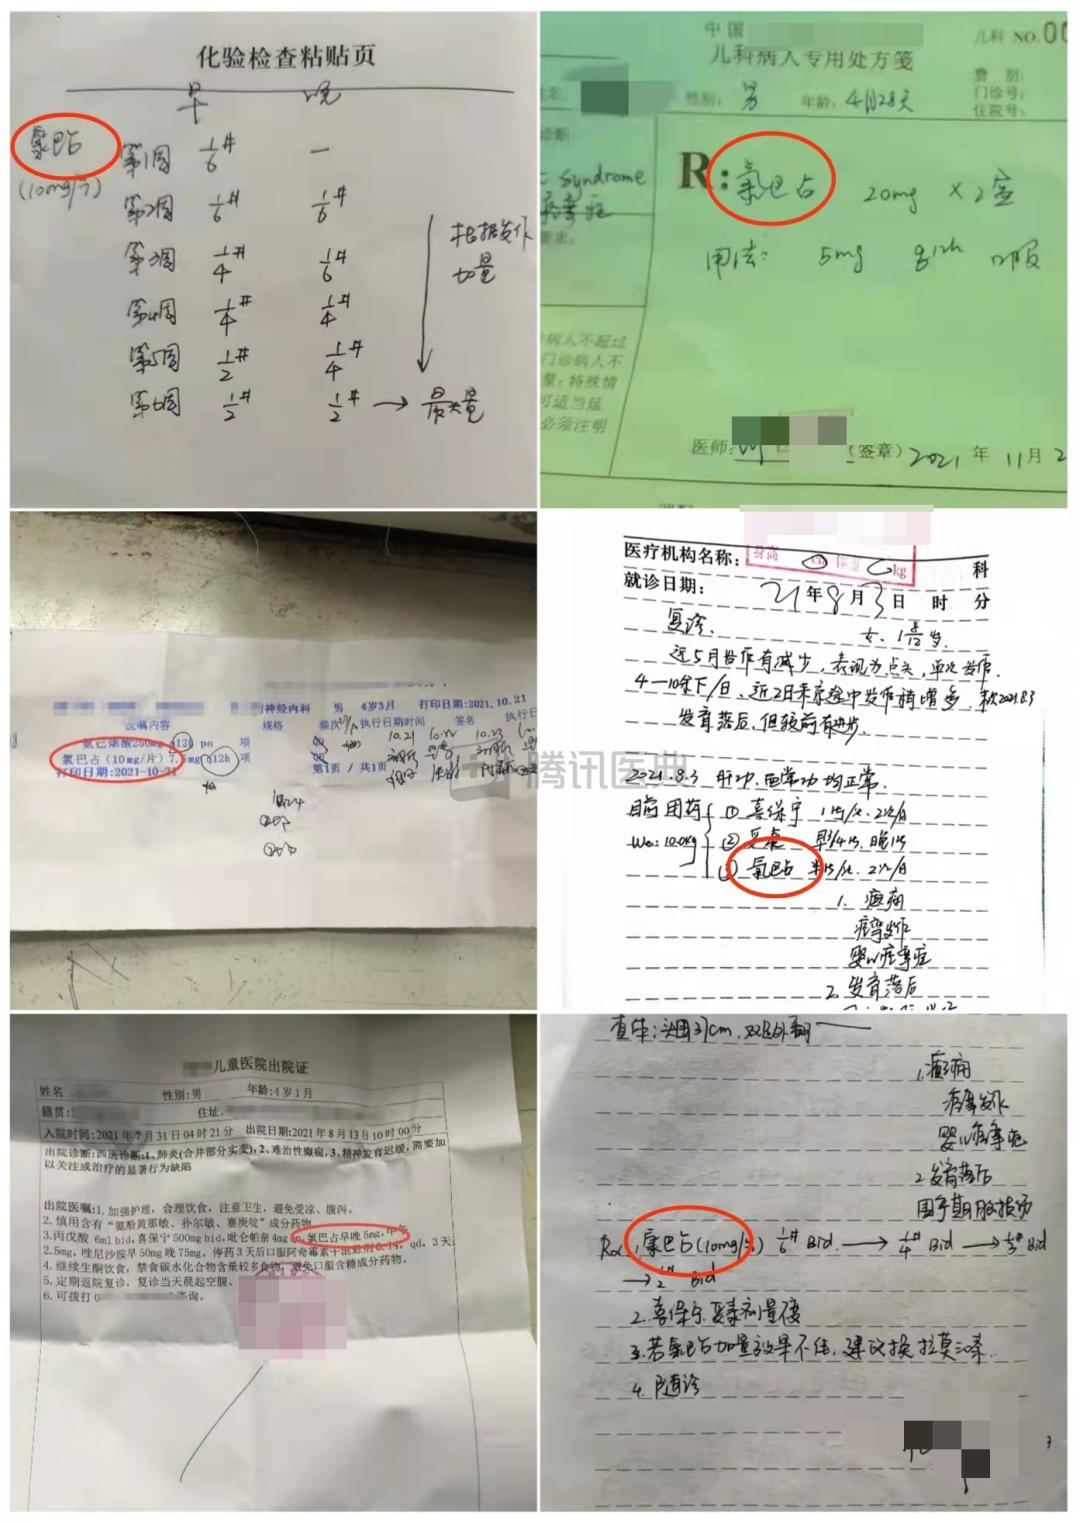 化验检查粘贴页
早 晚
氯巴占
(10mg/片)
第1周 1/6# —
第2周 1/6# 1/6#
第3周 1/4# 1/6#
第4周 1/4# 1/4#
第5周 1/2# 1/4#
第6周 1/2# 1/2# → 最大量
根据发作
加量
中国
儿科病人专用处方笺
儿科 NO.00
费 别:
门诊号:
住院号:
姓名
性别: 男 年龄: 4月28天
诊断
Syndrome
要求:
R: 氯巴占 20mg × 2盒
用法: 5mg q12h 口服
病人不超过
门诊病人不
量; 特殊情
可适当延
必须注明
医师: (签章) 2021 年 11月 2
神经内科 男 4岁3月 打印日期:2021.10.21
医嘱内容 规格 频次 执行日期时间 签名 执行日
10.21 10.22 10.23
氨己烯酸250mg q12h po 项
氯巴占 (10mg/片) 7.5mg q12h 项
打印日期:2021-10-21 第1页 / 共1页
腾讯医典
医疗机构名称: 科
身高 cm 体重 kg
就诊日期: 21年8月3日 时 分
复诊. 女.
近5月发作有减少, 表现为点头, 单次发作.
发育落后, 但较前有进步.
2021.8.3 肝功, 血常规 均正常.
目前用药 ① 喜保宁 1片/次. 2次/日
Wt: 10.0kg ② 妥泰 早3/4片. 晚1片
③ 氯巴占 半片/次. 2次/日
1. 癫痫
痉挛发作
婴儿痉挛症
2. 发育落后
儿童医院出院证
姓名 性别:男 年龄:4岁1月
籍贯: 住址:
入院时间:2021年7月31日04时21分 出院日期:2021年8月13日10时00分
出院诊断:西医诊断:1、肺炎(合并部分实变),2、难治性癫痫,3、精神发育迟缓,需要加
以关注或治疗的显著行为缺陷
出院医嘱:1. 加强护理, 合理饮食, 注意卫生, 避免受凉、腹泻。
2. 慎用含有“氨酚黄那敏、扑尔敏、赛庚啶”成分药物
3. 丙戊酸 6ml bid, 喜保宁 500mg bid, 吡仑帕奈 4mg 氯巴占早晚5mg, 中午
2.5mg, 唑尼沙胺早50mg 晚75mg, 停药3天后口服阿奇霉素干混悬剂 qd, 3天
4. 继续生酮饮食, 禁食碳水化合物含量较多食物, 避免口服含糖成分药物。
5. 定期返院复诊, 复诊当天晨起空腹、
6. 可拨打0 咨询。
查体: 头围37cm,
1. 癫痫
痉挛发作
婴儿痉挛症
2. 发育落后
围产期脑损伤
Rx 1. 氯巴占(10mg/片) 1/6# Bid → 1/4# Bid → 1/3# Bid
→ 1/2# Bid
2. 喜保宁. 妥泰剂量不变
3. 若氯巴占加量效果不佳, 建议换拉莫三嗪.
4. 随诊